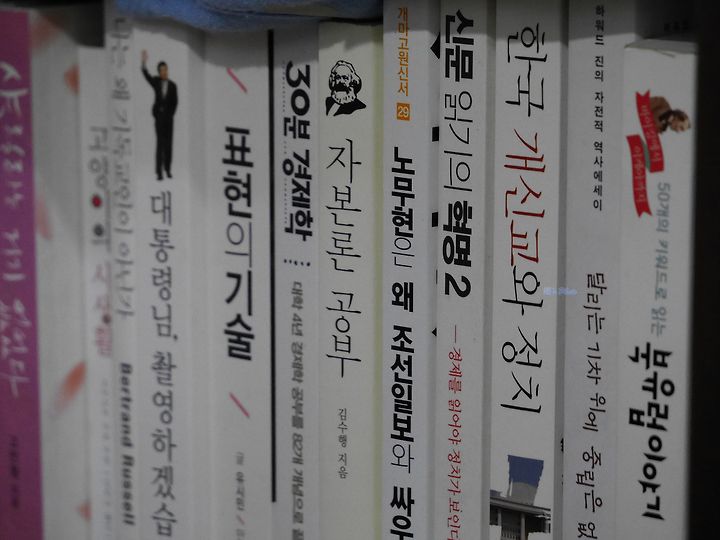 나는 왜 기독교인이 아닌가
Bertrand Russell
대통령님, 촬영하겠습
표현의 기술
글 유시민
30분 경제학
대학 4년 경제학 공부를 82개 개념으로 끝
자본론 공부
김수행 지음
개마고원신서
29
노무현은 왜 조선일보와 싸우
신문 읽기의 혁명 2
경제를 읽어야 정치가 보인다
한국 개신교와 정치
하워드 진의 자전적 역사에세이
달리는 기차 위에 중립은 없
50개의 키워드로 읽는
북유럽이야기